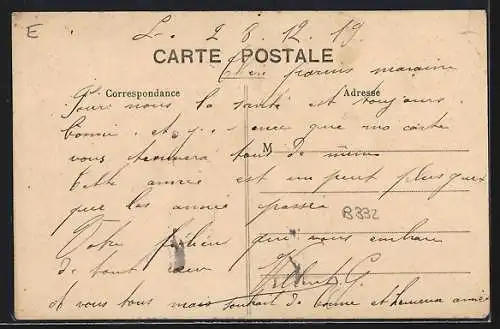 E
L. 28.12.19
CARTE POSTALE
Chère marraine
Correspondance Adresse
Pour nous la santé est toujours
bonne et que ma carte
M
vous trouvera tous de même
Cette année est un peut plus
que les année passée
B332
Votre qui vous embrasse
de tout cœur
et vous tous mais souhait de bonne et heureuse année